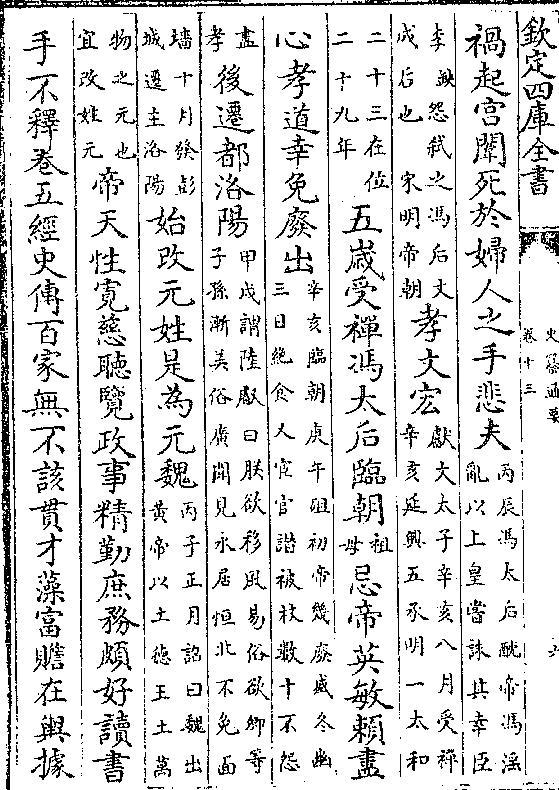 欽定四庫全書
史纂通要
卷十三
禍起宮闈死於婦人之手悲夫丙辰馮太后酖帝馮淫
亂以上皇嘗誅其幸臣
李怨弑之馮后文
成后也 宋明帝朝孝文宏獻文太子辛亥八月受禪
辛亥延興五承明一太和
二十三在位
二十九年五嵗受禪馮太后臨朝祖
母忌帝英敏賴盡
心孝道幸免廢出辛亥臨朝庚午殂初帝幾廢盛冬幽
三日絶食人宦官譖被杖數十不怨
盡
孝後遷都洛陽甲戌謂陸叡曰朕欲移風易俗欲卿等
子孫漸美俗廣聞見永居恒北不免面
墻十月發彭
城遷主洛陽始改元姓是為元魏丙子正月詔曰魏出
黄帝以土德王土萬
物之元也
宜改姓元帝天性寛慈聽覽政事精勤庶務頗好讀書
手不釋卷五經史傳百家無不該貫才藻富贍在輿據